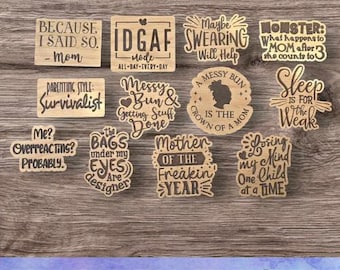 BECAUSE
I SAID SO.
Mom
IDGAF
mode
ALL-DAY-EVERY-DAY
Maybe
SWEARING
Will Help
MONSTER:
What happens to
MOM after
she counts to 3
PARENTING STYLE:
Survivalist
Messy
Bun &
Getting Stuff
Done
A MESSY BUN
IS THE
CROWN OF A MOM
SLEEP
IS FOR
THE
WEAK
Me?
OVERREACTING?
PROBABLY.
The
BAGS
under my
EYES
Are
designer
Mother
OF THE
Freakin'
YEAR
Losing
my Mind
One Child
at a TIME